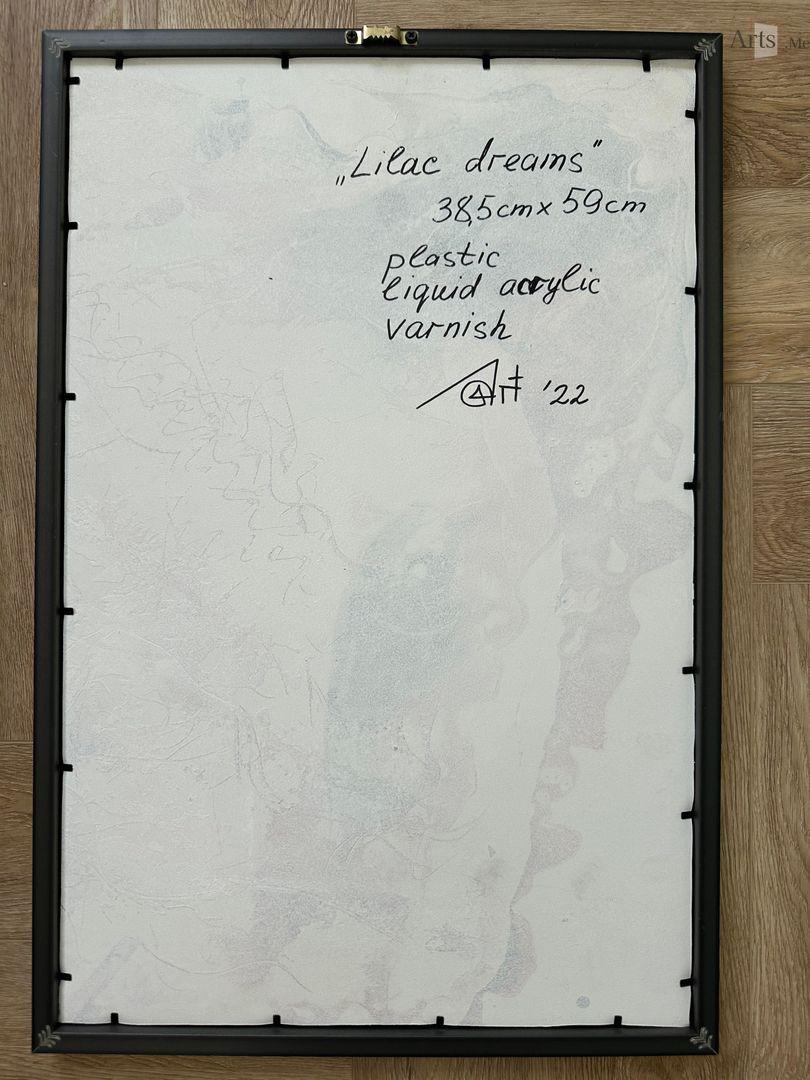 Arts.Me
„Lilac dreams”
38,5cm x 59cm
plastic
liquid acrylic
varnish
'22